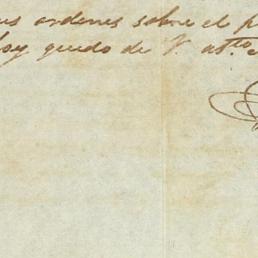 us ordenes sobre el p
hoy quedo de V. atto